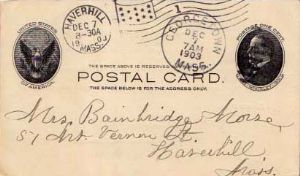 HAVERHILL
DEC 7
8-30A
MASS.
GEORGETOWN
DEC
7AM
1903
MASS.
UNITED STATES
OF AMERICA
THE SPACE ABOVE IS RESERVED
POSTAL CARD.
THE SPACE BELOW IS FOR THE ADDRESS ONLY.
POSTAGE ONE CENT
Mrs. Bainbridge Morse,
51 Mt. Vernon St.
Haverhill
Mass.